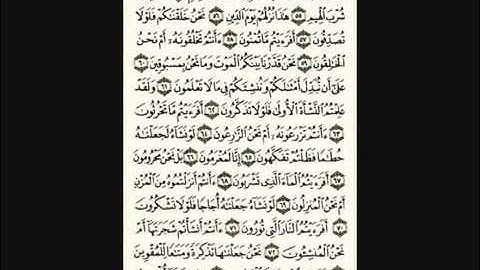 شُرْبَ ٱلْهِيمِ ۝٥٥ هَـٰذَا نُزُلُهُمْ يَوْمَ ٱلدِّينِ ۝٥٦ نَحْنُ خَلَقْنَـٰكُمْ فَلَوْلَا
تُصَدِّقُونَ ۝٥٧ أَفَرَءَيْتُم مَّا تُمْنُونَ ۝٥٨ ءَأَنتُمْ تَخْلُقُونَهُۥٓ أَمْ نَحْنُ
ٱلْخَـٰلِقُونَ ۝٥٩ نَحْنُ قَدَّرْنَا بَيْنَكُمُ ٱلْمَوْتَ وَمَا نَحْنُ بِمَسْبُوقِينَ ۝٦٠
عَلَىٰٓ أَن نُّبَدِّلَ أَمْثَـٰلَكُمْ وَنُنشِئَكُمْ فِى مَا لَا تَعْلَمُونَ ۝٦١ وَلَقَدْ
عَلِمْتُمُ ٱلنَّشْأَةَ ٱلْأُولَىٰ فَلَوْلَا تَذَكَّرُونَ ۝٦٢ أَفَرَءَيْتُم مَّا تَحْرُثُونَ
۝٦٣ ءَأَنتُمْ تَزْرَعُونَهُۥٓ أَمْ نَحْنُ ٱلزَّٰرِعُونَ ۝٦٤ لَوْ نَشَآءُ لَجَعَلْنَـٰهُ
حُطَـٰمًا فَظَلْتُمْ تَفَكَّهُونَ ۝٦٥ إِنَّا لَمُغْرَمُونَ ۝٦٦ بَلْ نَحْنُ مَحْرُومُونَ
۝٦٧ أَفَرَءَيْتُمُ ٱلْمَآءَ ٱلَّذِى تَشْرَبُونَ ۝٦٨ ءَأَنتُمْ أَنزَلْتُمُوهُ مِنَ ٱلْمُزْنِ
أَمْ نَحْنُ ٱلْمُنزِلُونَ ۝٦٩ لَوْ نَشَآءُ جَعَلْنَـٰهُ أُجَاجًا فَلَوْلَا تَشْكُرُونَ
۝٧٠ أَفَرَءَيْتُمُ ٱلنَّارَ ٱلَّتِى تُورُونَ ۝٧١ ءَأَنتُمْ أَنشَأْتُمْ شَجَرَتَهَآ أَمْ
نَحْنُ ٱلْمُنشِـُٔونَ ۝٧٢ نَحْنُ جَعَلْنَـٰهَا تَذْكِرَةً وَمَتَـٰعًا لِّلْمُقْوِينَ